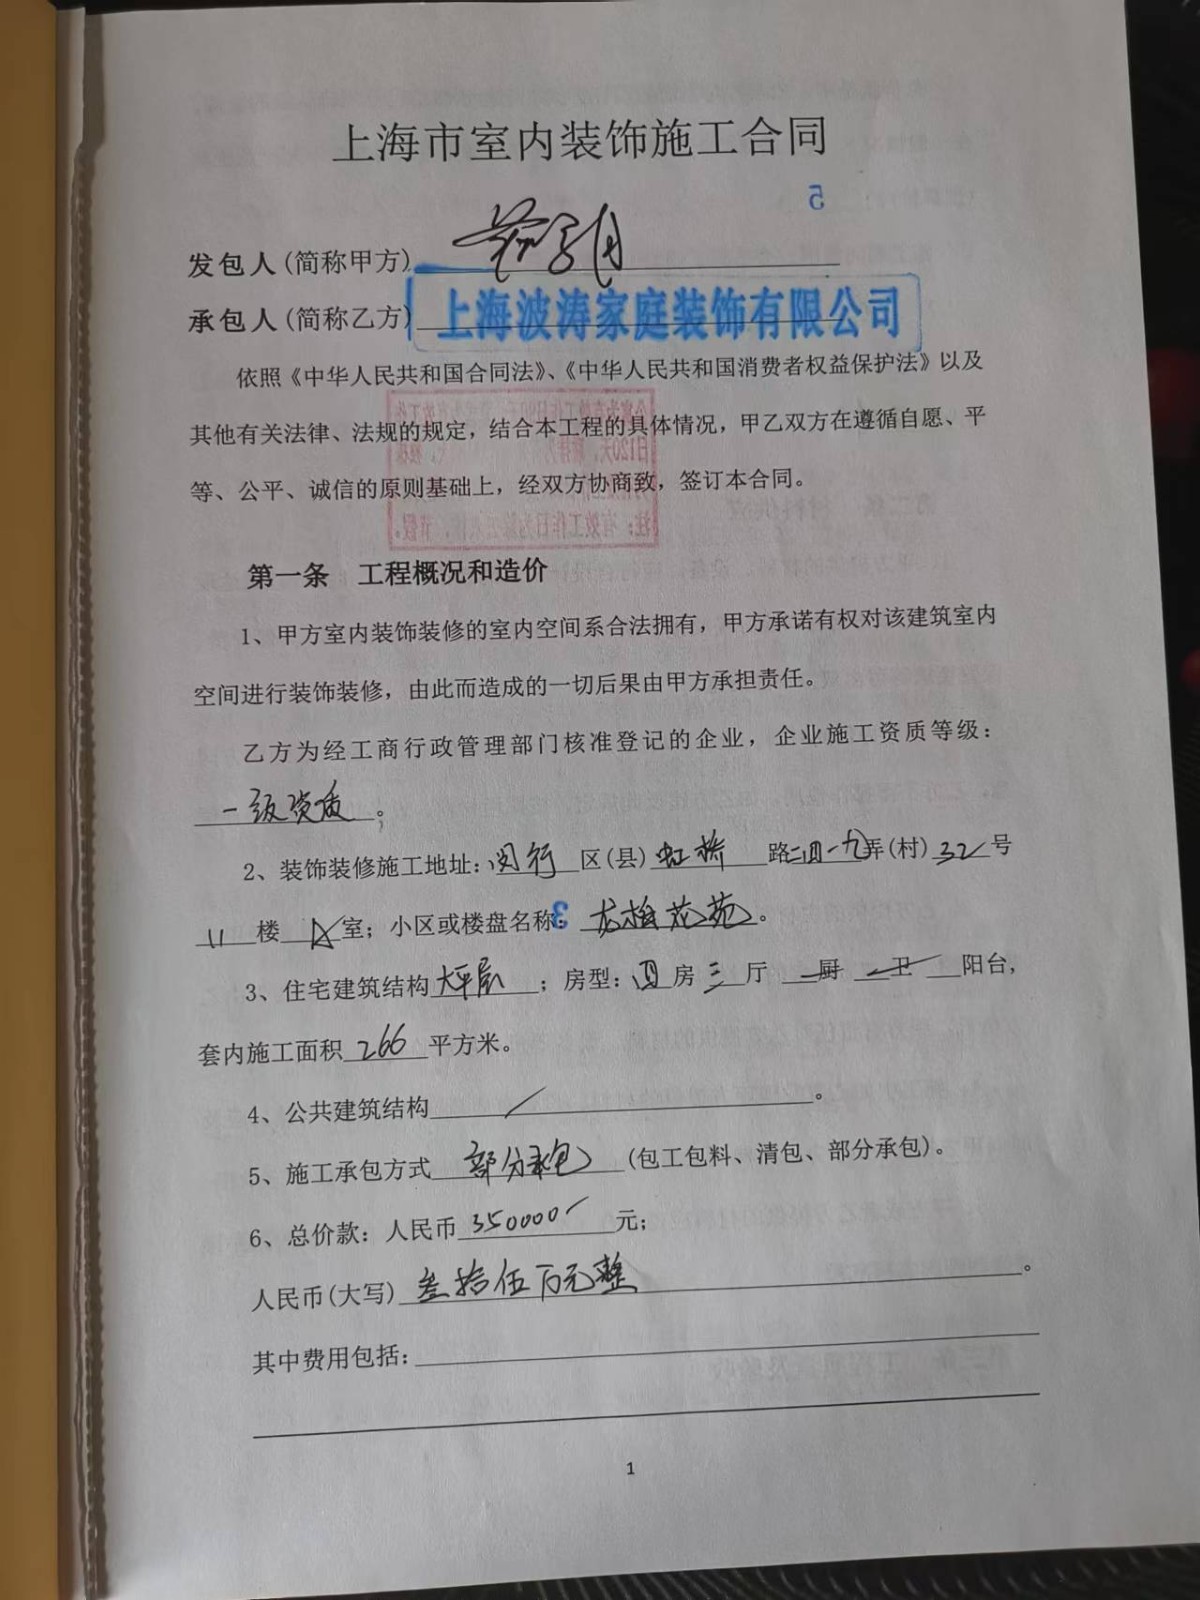 上海市室内装饰施工合同
发包人(简称甲方)
承包人(简称乙方) 上海波涛家庭装饰有限公司
依照《中华人民共和国合同法》、《中华人民共和国消费者权益保护法》以及
其他有关法律、法规的规定，结合本工程的具体情况，甲乙双方在遵循自愿、平
等、公平、诚信的原则基础上，经双方协商致，签订本合同。
第一条 工程概况和造价
1、甲方室内装饰装修的室内空间系合法拥有，甲方承诺有权对该建筑室内
空间进行装饰装修，由此而造成的一切后果由甲方承担责任。
乙方为经工商行政管理部门核准登记的企业，企业施工资质等级：
一级资质。
2、装饰装修施工地址：闵行 区(县) 虹桥 路 二四一九 弄(村) 32 号
11 楼 A 室；小区或楼盘名称： 龙柏花苑。
3、住宅建筑结构 大平层 ；房型：四 房 三 厅 厨 卫 阳台，
套内施工面积 266 平方米。
4、公共建筑结构 / 。
5、施工承包方式 部分承包 (包工包料、清包、部分承包)。
6、总价款：人民币 350000 元；
人民币(大写) 叁拾伍万元整 。
其中费用包括：
1